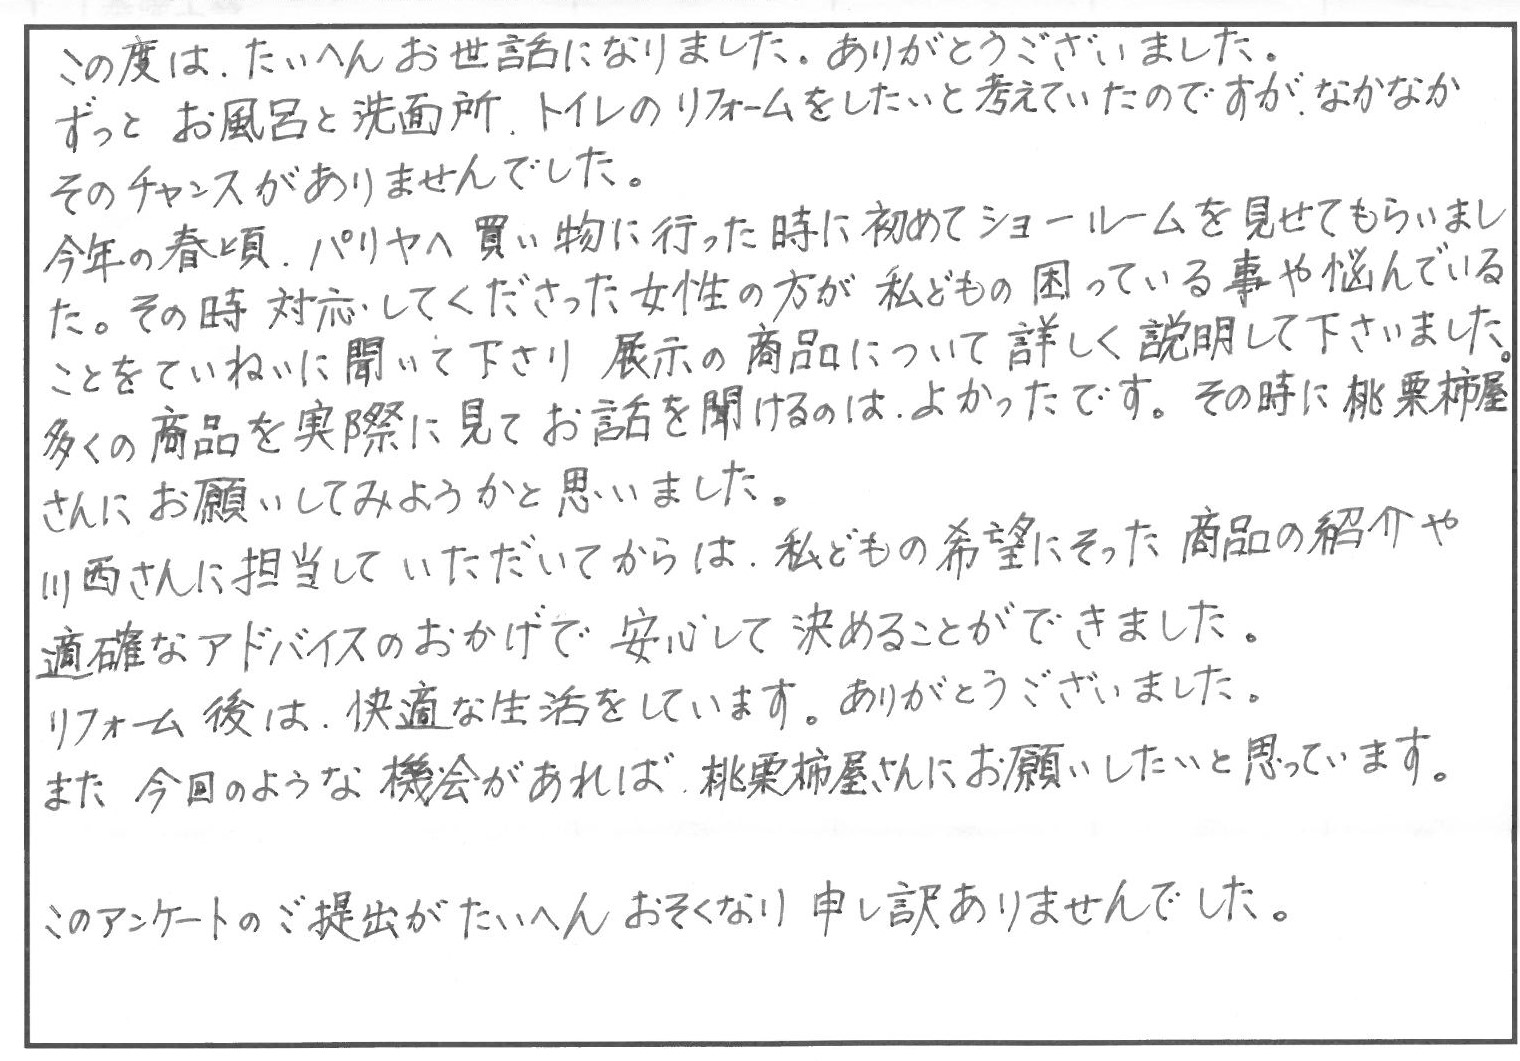 この度は、たいへんお世話になりました。ありがとうございました。
ずっと お風呂と洗面所、トイレのリフォームをしたいと考えていたのですが、なかなか
そのチャンスがありませんでした。
今年の春頃、パリヤへ買い物に行った時に初めてショールームを見せてもらいまし
た。その時 対応してくださった女性の方が 私どもの困っている事や悩んでいる
ことをていねいに聞いて下さり 展示の商品について詳しく説明して下さいました。
多くの商品を実際に見てお話を聞けるのは、よかったです。その時に桃栗柿屋
さんにお願いしてみようかと思いました。
川西さんに担当していただいてからは、私どもの希望にそった商品の紹介や
適確なアドバイスのおかげで安心して決めることができました。
リフォーム後は、快適な生活をしています。ありがとうございました。
また 今回のような機会があれば、桃栗柿屋さんにお願いしたいと思っています。
このアンケートのご提出がたいへんおそくなり申し訳ありませんでした。